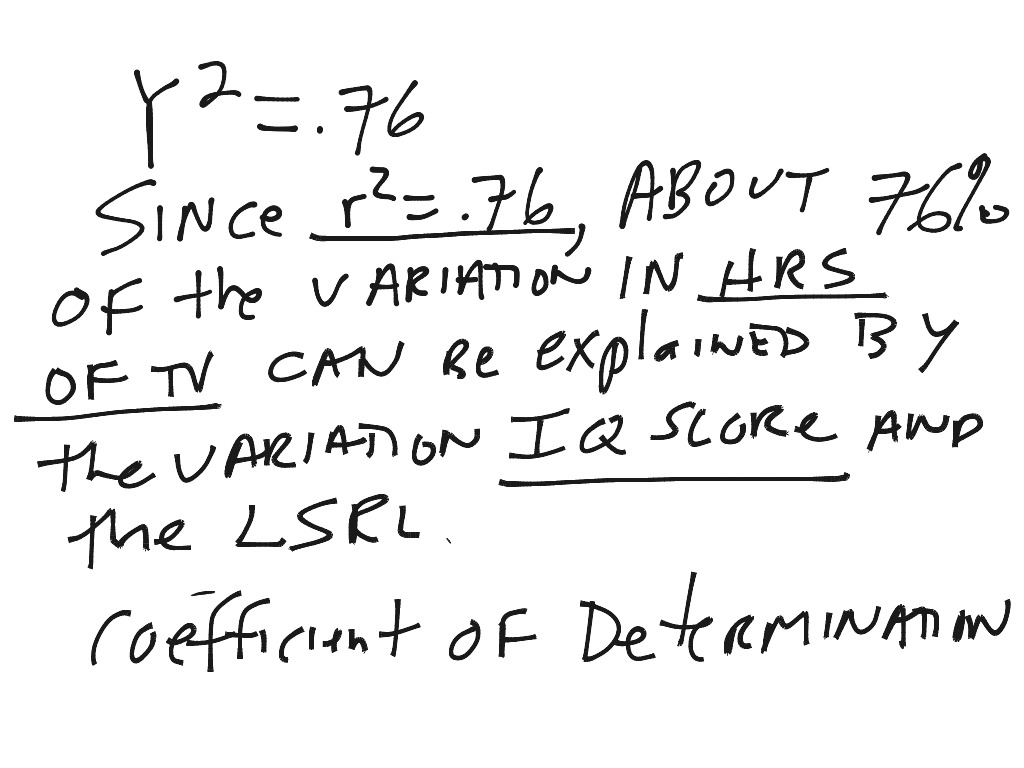 r² = .76
SINCE r² = .76, ABOUT 76%
OF the VARIATION IN HRS
OF TV CAN Be explaINED BY
the VARIATION IQ SCORe AND
the LSRL.
Coefficient OF DetermINATION